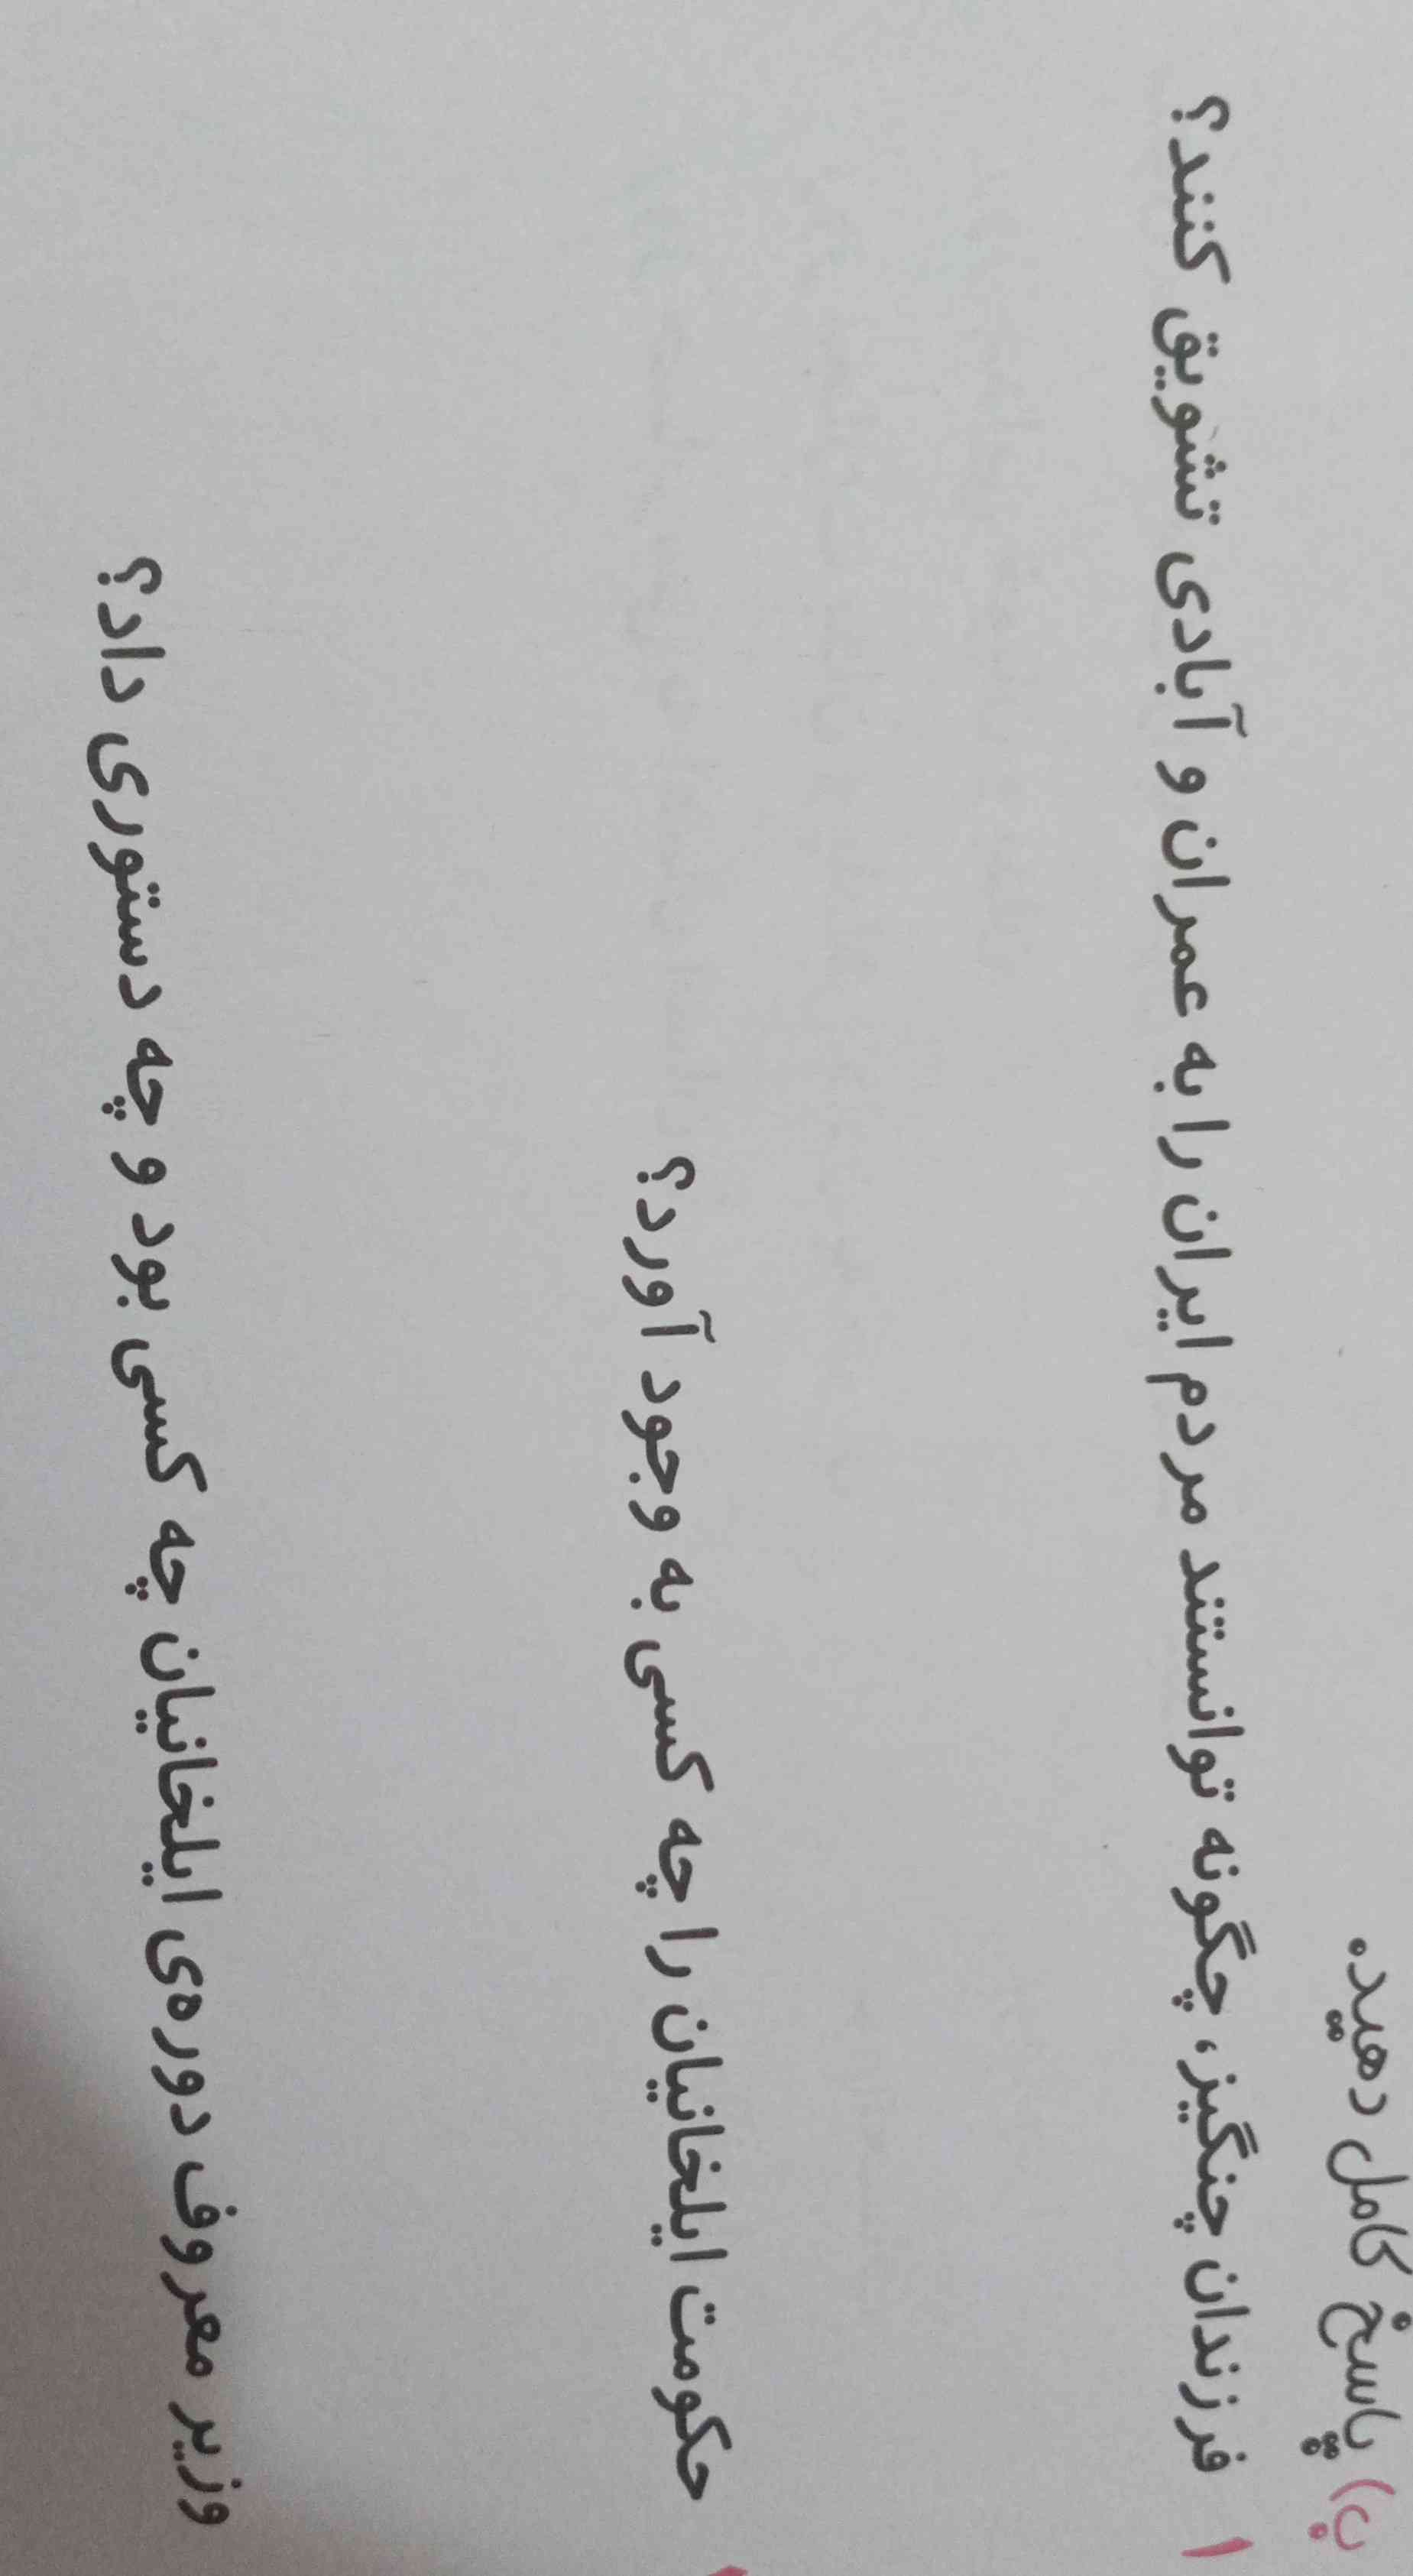 ب) پاسخ کامل دهید.
۱ فرزندان چنگیز، چگونه توانستند مردم ایران را به عمران و آبادی تشویق کنند؟
حکومت ایلخانیان را چه کسی به وجود آورد؟
وزیر معروف دوره‌ی ایلخانیان چه کسی بود و چه دستوری داد؟